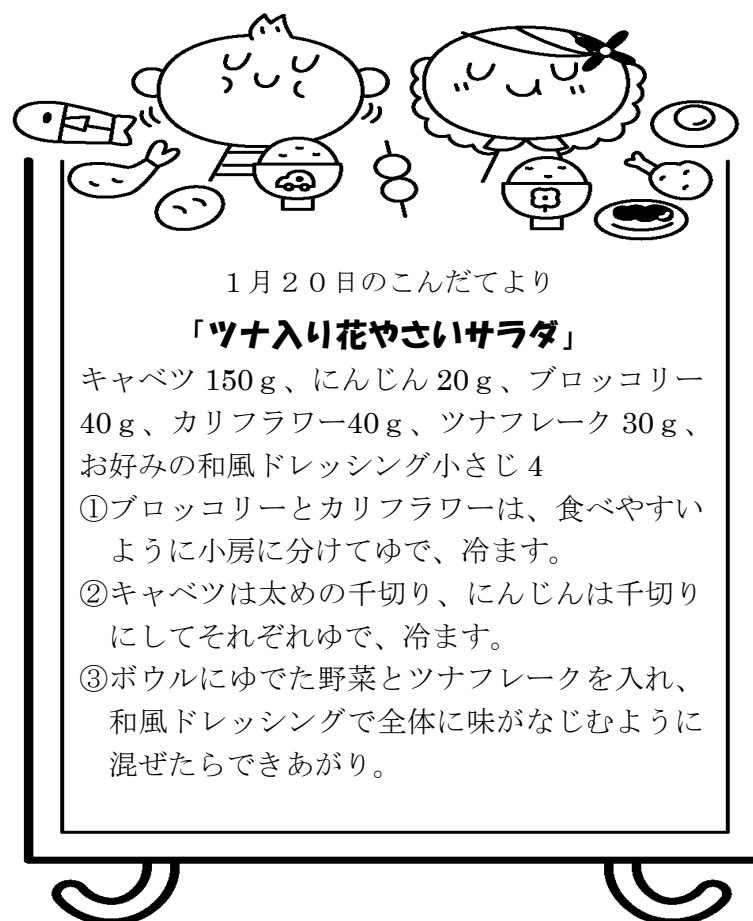 １月２０日のこんだてより
「ツナ入り花やさいサラダ」
キャベツ 150ｇ、にんじん 20ｇ、ブロッコリー
40ｇ、カリフラワー40ｇ、ツナフレーク 30ｇ、
お好みの和風ドレッシング小さじ 4
①ブロッコリーとカリフラワーは、食べやすい
ように小房に分けてゆで、冷ます。
②キャベツは太めの千切り、にんじんは千切り
にしてそれぞれゆで、冷ます。
③ボウルにゆでた野菜とツナフレークを入れ、
和風ドレッシングで全体に味がなじむように
混ぜたらできあがり。